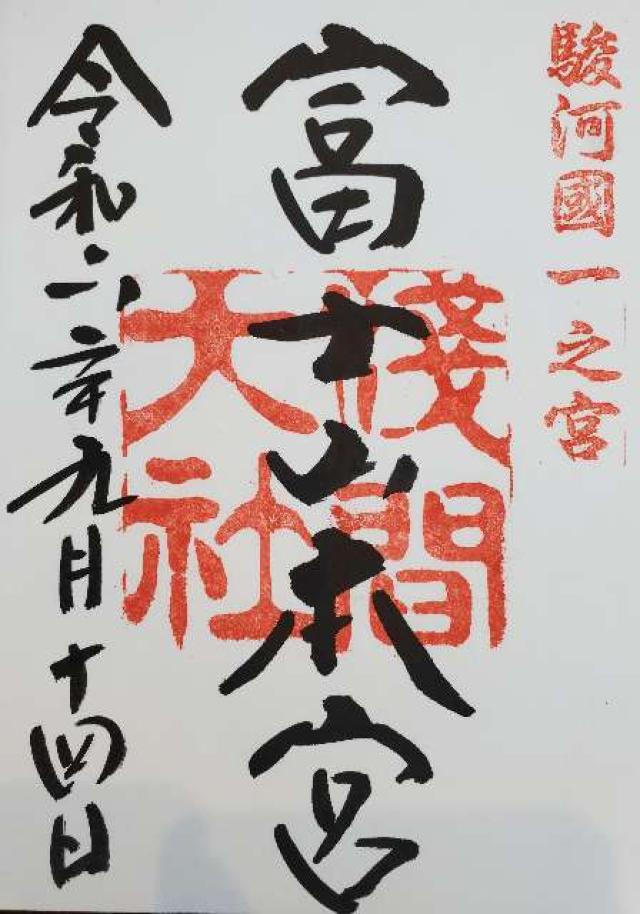 駿河國一之宮
富士山本宮
淺間
大社
令和六年九月十四日